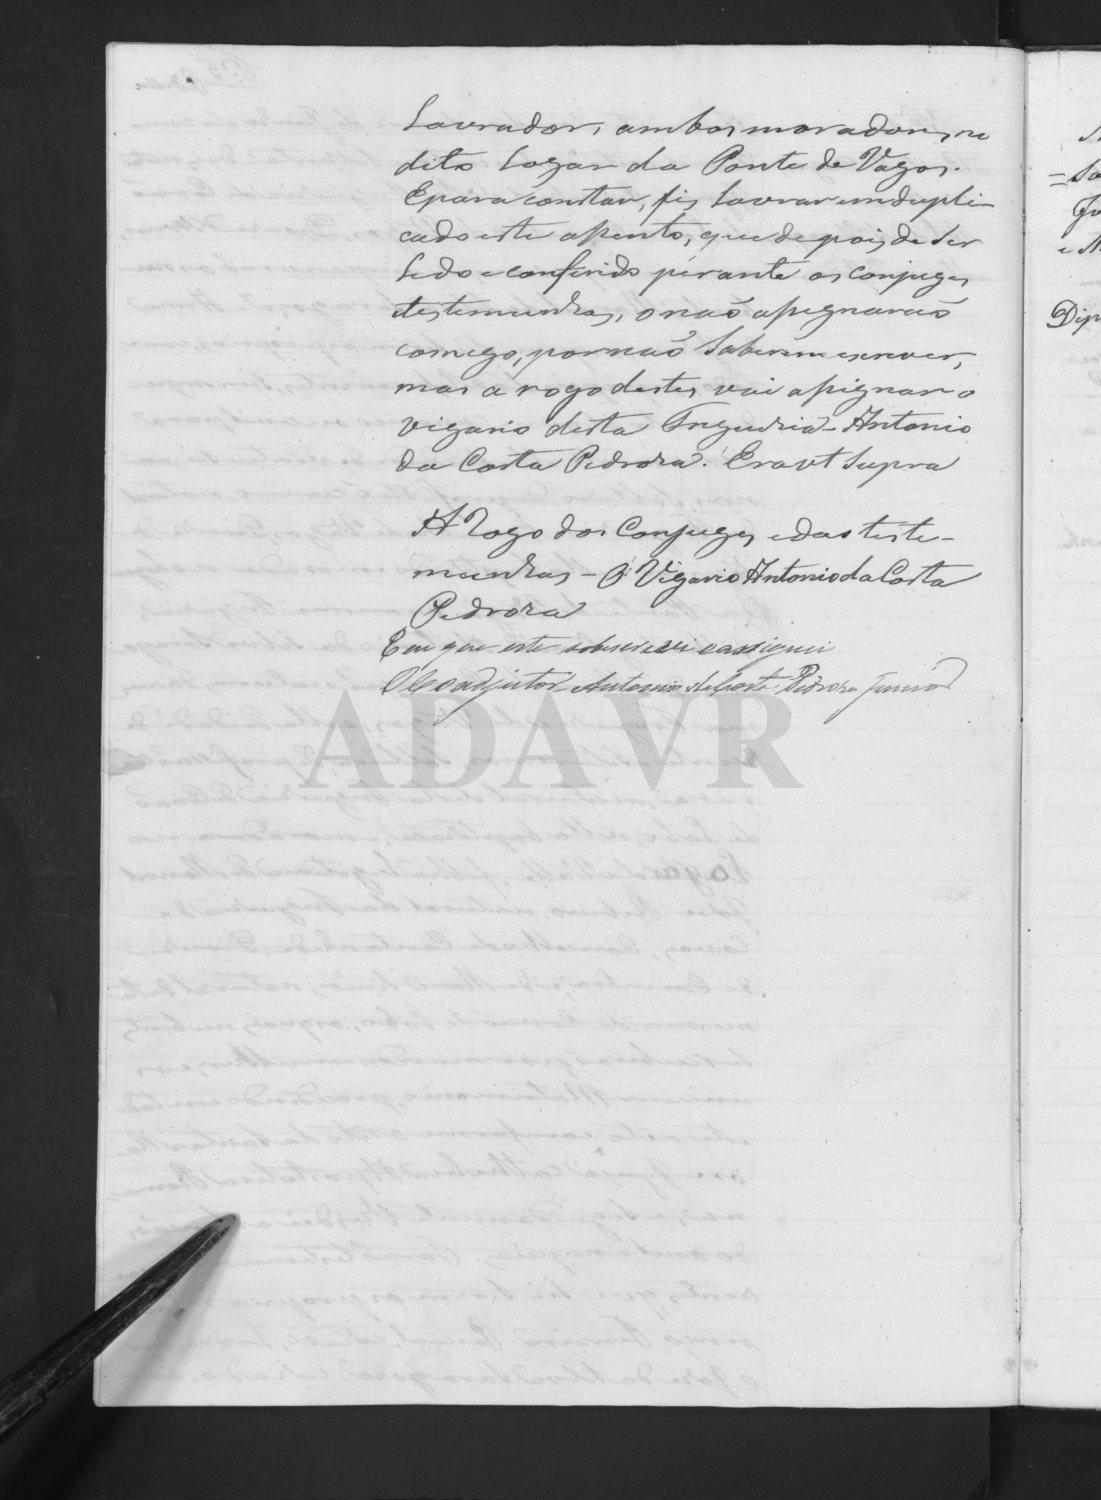 Lavrador, ambos moradores no
dito Logar da Ponte de Vagos.
E para constar, fis Lavrar em dupli-
cado este assento, que depois de ser
Ledo e conferido perante os conjuges
e testemunhas, o não assignarão
comigo, por não saberem escrever,
mas a rogo destes vai assignar o
vigario desta Freguezia - Antonio
da Costa Pedroza. Era ut supra
A rogo dos Conjuges e das teste-
munhas - O Vigario Antonio da Costa
Pedroza
E eu que este subscrevi e assignei
O Coadjutor Antonio da Costa Pedroza Junior
ADAVR